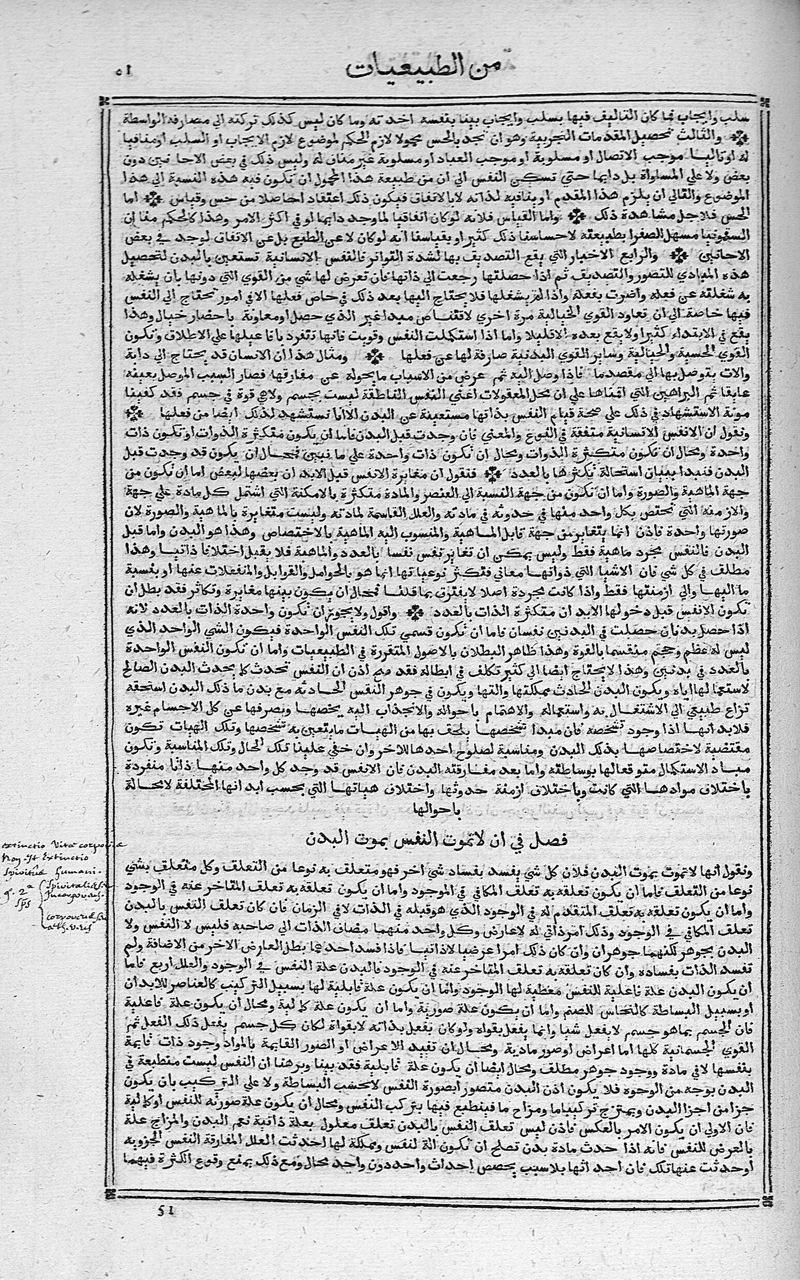 من الطبيعيات
٥١
سلب وايجاب فما كان التاليف فيها بسلب وايجاب بينا بنفسه اخذته وما كان ليس كذلك تركته الي مصادفة الواسطة
والثالث تحصيل المقدمات التجربية وهو ان تجد بالحس محمولا لازم الحكم لموضوع لازم الايجاب او السلب او منافيا
له او تاليا موجب الاتصال او مسلوبه او موجب العناد او مسلوبه غير مناف له وليس ذلك في بعض الاحايين دون
بعض ولا علي المساواة بل دايما حتي تسكن النفس الي ان من طبيعة هذا المحمول ان تكون فيه هذه النسبة الي هذا
الموضوع والتالي ان يلزم هذا المقدم او ينافيه لذاته لا بالاتفاق فيكون ذلك اعتقادا حاصلا من حس وقياس اما
الحس فلاجل مشاهدة ذلك واما القياس فلانه لو كان اتفاقيا لما وجد دايما او في اكثر الامر وهذا كالحكم منا ان
السقمونيا مسهل للصفرا بطبيعته لاحساسنا ذلك كثيرا وبقياسنا انه لو كان لا عن الطبع بل عن الاتفاق لوجد في بعض
الاحايين والرابع الاخبار التي يقع التصديق بها لشدة التواتر فالنفس الانسانية تستعين بالبدن لتحصيل
هذه المبادي للتصور والتصديق ثم اذا حصلتها رجعت الي ذاتها فان تعرض لها شي من القوي التي دونها بان يشغله
به شغلته عن فعله واضرت بفعله واذا لم يشغلها فلا يحتاج اليها بعد ذلك في خاص فعلها الا في امور تحتاج الي النفس
فيها خاصة الي ان تعاود القوي الخيالية مرة اخري لاقتناص مبدا غير الذي حصل او معاونة باحضار خيال وهذا
يقع في الابتداء كثيرا ولا يقع بعده الا قليلا واما اذا استكملت النفس وقويت فانها تنفرد بافاعيلها علي الاطلاق وتكون
القوي الحسية والخيالية وساير القوي البدنية صارفة لها عن فعلها ومثال هذا ان الانسان قد يحتاج الي دابة
والات يتوصل بها الي مقصد ما فاذا وصل اليه ثم عرض من الاسباب ما يحوله عن مفارقتها فصار السبب الموصل بعينه
عايقا ثم البراهين التي اقمناها علي ان محل المعقولات اعني النفس الناطقة ليست بجسم ولا هي قوة في جسم فقد كفتنا
مونة الاستشهاد في ذلك علي صحة قيام النفس بذاتها مستغنية عن البدن الا انا نستشهد لذلك ايضا من فعلها
ونقول ان الانفس الانسانية متفقة في النوع والمعني فان وجدت قبل البدن فاما ان يكون متكثرة الذوات او تكون ذات
واحدة ومحال ان تكون متكثرة الذوات ومحال ان تكون ذات واحدة علي ما نبين فمحال ان يكون قد وجدت قبل
البدن فنبدا ببيان استحالة تكثرها بالعدد فنقول ان مغايرة الانفس قبل الابدان بعضها لبعض اما ان تكون من
جهة الماهية والصورة واما ان تكون من جهة النسبة الي العنصر والمادة متكثرة بالامكنة التي اشتمل كل مادة علي جهة
والازمنة التي تختص بكل واحد منها في حدوثه في مادته والعلل القاسمة لمادته وليست متغايرة بالماهية والصورة لان
صورتها واحدة فاذن انما يتغاير من جهة قابل الماهية والمنسوب اليه الماهية بالاختصاص وهذا هو البدن واما قبل
البدن فالنفس مجرد ماهية فقط وليس يمكن ان تغاير نفس نفسا بالعدد والماهية فلا يقبل اختلافا ذاتيا وهذا
مطلق في كل شي فان الاشيا التي ذواتها معاني فتكثر نوعياتها انما هو بالحوامل والقوابل والمنفعلات عنها او بنسبة
ما اليها والي ازمنتها فقط واذا كانت مجردة اصلا لا يفترق بما قلنا فمحال ان يكون بينها مغايرة وتكاثر فقد بطل ان
تكون الانفس قبل دخولها الابدان متكثرة الذات بالعدد واقول ولا يجوز ان تكون واحدة الذات بالعدد لانه
اذا حصل بدنان حصلت في البدنين نفسان فاما ان تكون قسمي تلك النفس الواحدة فيكون الشي الواحد الذي
ليس له عظم وحجم منقسما بالقوة وهذا ظاهر البطلان بالاصول المتقررة في الطبيعيات واما ان تكون النفس الواحدة
بالعدد في بدنين وهذا لا يحتاج ايضا الي كثير تكلف في ابطاله فقد صح اذن ان النفس تحدث كما يحدث البدن الصالح
لاستعمالها اياه ويكون البدن الحادث مملكتها والتها ويكون في جوهر النفس الحادثة مع بدن ما ذلك البدن استحقه
نزاع طبيعي الي الاشتغال به واستعماله والاهتمام باحواله والانجذاب اليه يخصها ويصرفها عن كل الاجسام غيره
فلا بد انها اذا وجود تشخصه فان مبدا تشخصها يلحق بها من الهيات ما يتعين به تشخصها وتلك الهيات تكون
مقتضية لاختصاصها بذلك البدن ومناسبة لصلوح احدهما للاخر وان خفي علينا تلك الحال وتلك المناسبة وتكون
مبادا لاستكمال متوقعا لها بوساطته واما بعد مفارقته البدن فان الانفس قد وجد كل واحد منها ذاتا منفردة
باختلاف موادها التي كانت وباختلاف ازمنة حدوثها واختلاف هياتها التي بحسب ابدانها المختلفة لا محالة
باحوالها
فصل في ان لا تموت النفس بموت البدن
ونقول انها لا تموت بموت البدن فلان كل شي يفسد بفساد شي اخر فهو متعلق به نوعا من التعلق وكل متعلق بشي
نوعا من التعلق فاما ان يكون تعلقه به تعلق المكافي في الموجود واما ان يكون تعلقه به تعلق المتاخر عنه في الوجود
واما ان يكون تعلقه به تعلق المتقدم له في الوجود الذي هو قبله في الذات لا في الزمان فان كان تعلق النفس بالبدن
تعلق المكافي في الوجود وذلك امر ذاتي له لا عارض وكل واحد منهما مضاف الذات الي صاحبه فليس لا النفس ولا
البدن بجوهر لكنهما جوهران وان كان ذلك امرا عرضيا لا ذاتيا فاذا فسد احدهما بطل العارض الاخر من الاضافة ولم
تفسد الذات بفساده وان كان تعلقه به تعلق المتاخر عنه في الوجود فالبدن علة النفس في الوجود والعلل اربع فاما
ان يكون البدن علة فاعلية للنفس معطية لها الوجود واما ان يكون علة قابلية لها بسبيل التركيب كالعناصر للابدان
او بسبيل البساطة كالنحاس للصنم واما ان يكون علة صورية واما ان يكون علة كمالية ومحال ان يكون علة فاعلية
فان الجسم بما هو جسم لا يفعل شيا وانما يفعل بقواه ولو كان يفعل بذاته لا بقواه لكان كل جسم يفعل ذلك الفعل ثم
القوي الجسمانية كلها اما اعراض او صور مادية ومحال ان تفيد الاعراض او الصور القايمة بالمواد وجود ذات قايمة
بنفسها لا في مادة ووجود جوهر مطلق ومحال ايضا ان يكون علة قابلية فقد بينا وبرهنا ان النفس ليست منطبعة في
البدن بوجه من الوجوه فلا يكون اذن البدن متصورا بصورة النفس لا بحسب البساطة ولا علي التركيب بان يكون
جزا من اجزا البدن ويمتزج تركيبا ما ومزاجا ما فينطبع فيها بتركب النفس ومحال ان يكون علة صورية للنفس او كمالية
فان الاولي ان يكون الامر بالعكس فاذن ليس تعلق النفس بالبدن تعلق معلول بعلة ذاتية نعم البدن والمزاج علة
بالعرض للنفس فانه اذا حدث مادة بدن تصلح ان تكون الة لنفس ومملكة لها احدثت العلل المفارقة النفس الجزوية
او حدثت عنها تلك فان احداثها بلا سبب يخصص احداث واحد دون واحد محال ومع ذلك يمنع وقوع الكثرة فيهما
extinctio vitæ corporeæ
non est extinctio
spirituū humani
51